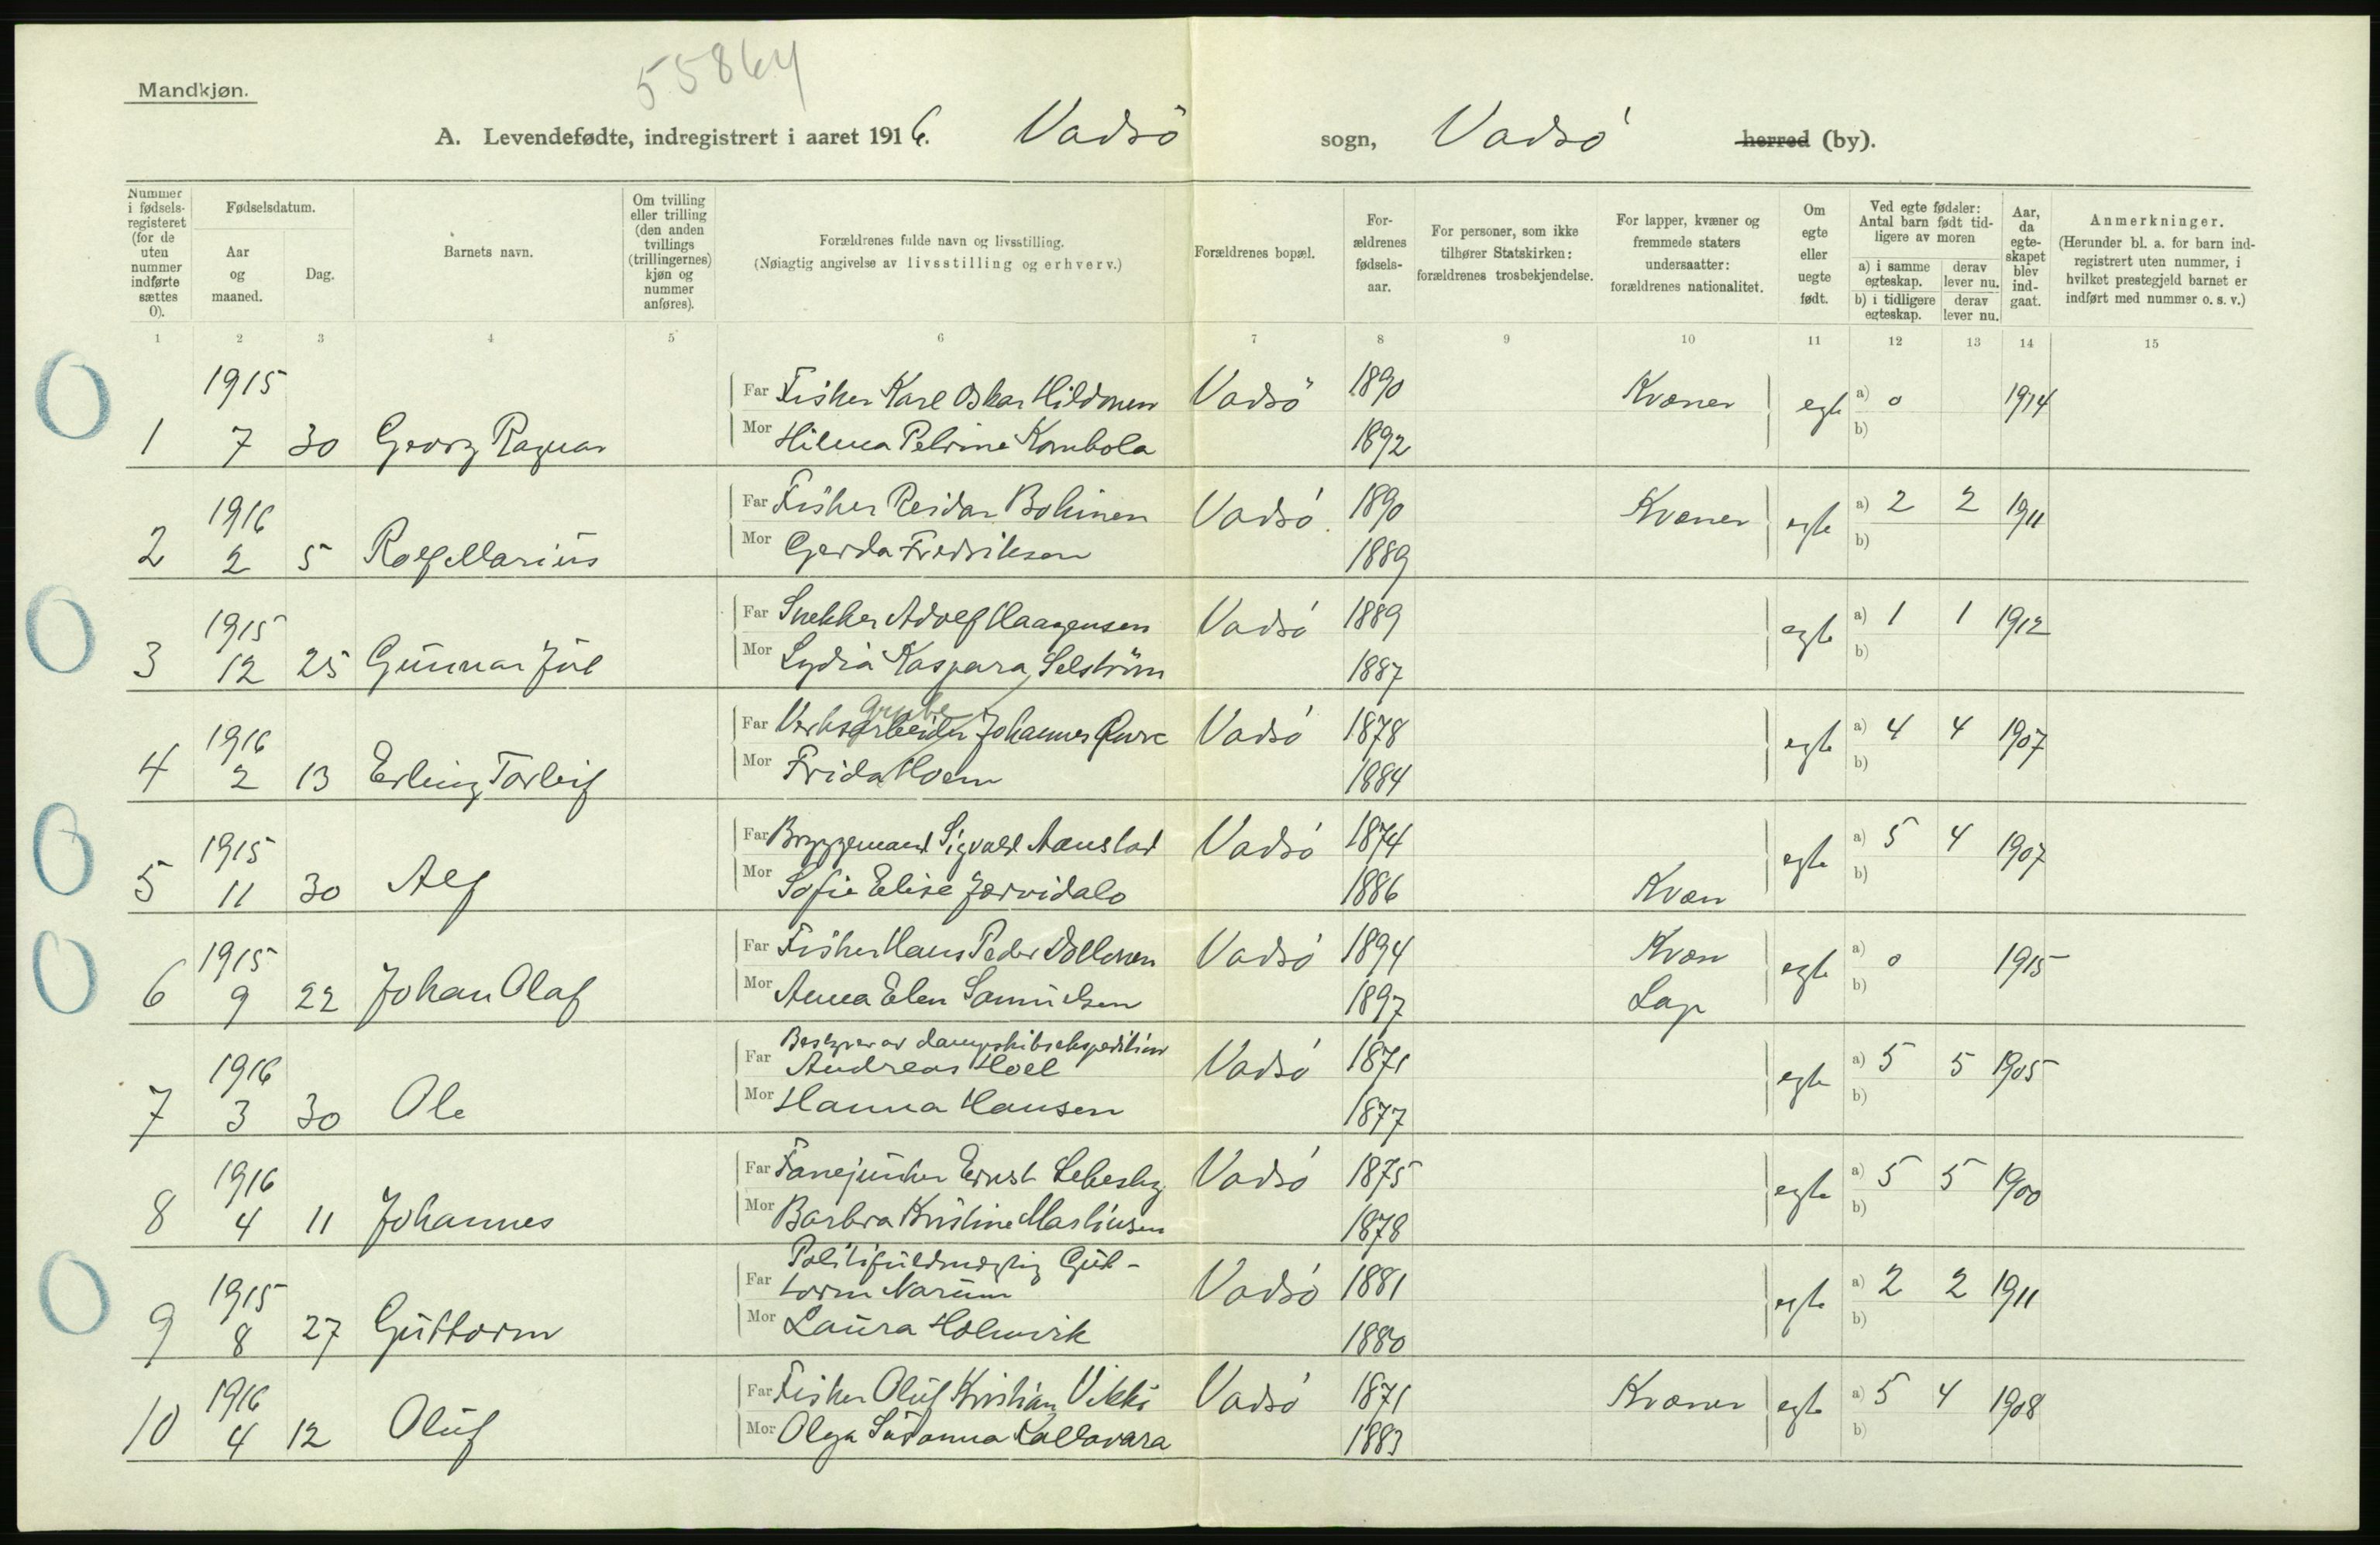 55864
Mandkjøn.
A. Levendefødte, indregistrert i aaret 1916. Vadsö sogn, Vadsö herred (by).
Nummer i fødselsregisteret (for de uten nummer indførte sættes 0).
Fødselsdatum.
Aar og maaned.
Dag.
Barnets navn.
Om tvilling eller trilling (den anden tvillings (trillingernes) kjøn og nummer anføres).
Forældrenes fulde navn og livsstilling.
(Nøiagtig angivelse av livsstilling og erhverv.)
Forældrenes bopæl.
Forældrenes fødselsaar.
For personer, som ikke tilhører Statskirken: forældrenes trosbekjendelse.
For lapper, kvæner og fremmede staters undersaatter: forældrenes nationalitet.
Om egte eller uegte født.
Ved egte fødsler: Antal barn født tidligere av moren
a) i samme egteskap. derav lever nu.
b) i tidligere egteskap. derav lever nu.
Aar, da egteskapet blev indgaat.
Anmerkninger.
(Herunder bl. a. for barn indregistrert uten nummer, i hvilket prestegjeld barnet er indført med nummer o. s. v.)
1 2 3 4 5 6 7 8 9 10 11 12 13 14 15
0
1915
Far Fisker Karl Oskar Hildonen Vadsö 1890 Kvæner egte a) 0 1914
1 7 30 Georg Ragnar
Mor Hilma Petrine Kombola 1892 b)
1916
Far Fisker Reidar Bohinen Vadsö 1890 Kvæner egte a) 2 2 1911
2 2 5 Rolf Marius
Mor Gerda Fredriksen 1889 b)
0
1915
Far Snekker Adolf Haagensen Vadsö 1889 egte a) 1 1 1912
3 12 25 Gunnar Jul
Mor Lydia Kaspara Selström 1887 b)
1916
Grube
Far Verksarbeider Johannes Vadsö 1878 egte a) 4 4 1907
4 2 13 Erling Torleif
Mor Frida Hoem 1884 b)
0
1915
Far Bryggemand Sigvald Aanstad Vadsö 1874 egte a) 5 4 1907
5 11 30 Alf
Mor Sofie Elise Jærvidalo 1886 Kvæn b)
0
1915
Far Fisker Hans Peder Dollonen Vadsö 1894 Kvæn egte a) 0 1915
6 9 22 Johan Olaf
Mor Anna Elen Samuelsen 1897 Lap b)
1916
Bestyrer av dampskibsekspedition
Far Andreas Hoel Vadsö 1871 egte a) 5 5 1905
7 3 30 Ole
Mor Hanna Hansen 1877 b)
1916
Far Fanejunker Ernst Lebesby Vadsö 1875 egte a) 5 5 1900
8 4 11 Johannes
Mor Barbra Kristine Martinsen 1878 b)
0
1915
Politifuldmægtig Gut-
Far torm Narum Vadsö 1881 egte a) 2 2 1911
9 8 27 Guttorm
Mor Laura Holmvik 1880 b)
1916
Far Fisker Oluf Kristian Vikki Vadsö 1871 Kvæner egte a) 5 4 1908
10 4 12 Oluf
Mor Olga Susanna Kallavara 1883 b)